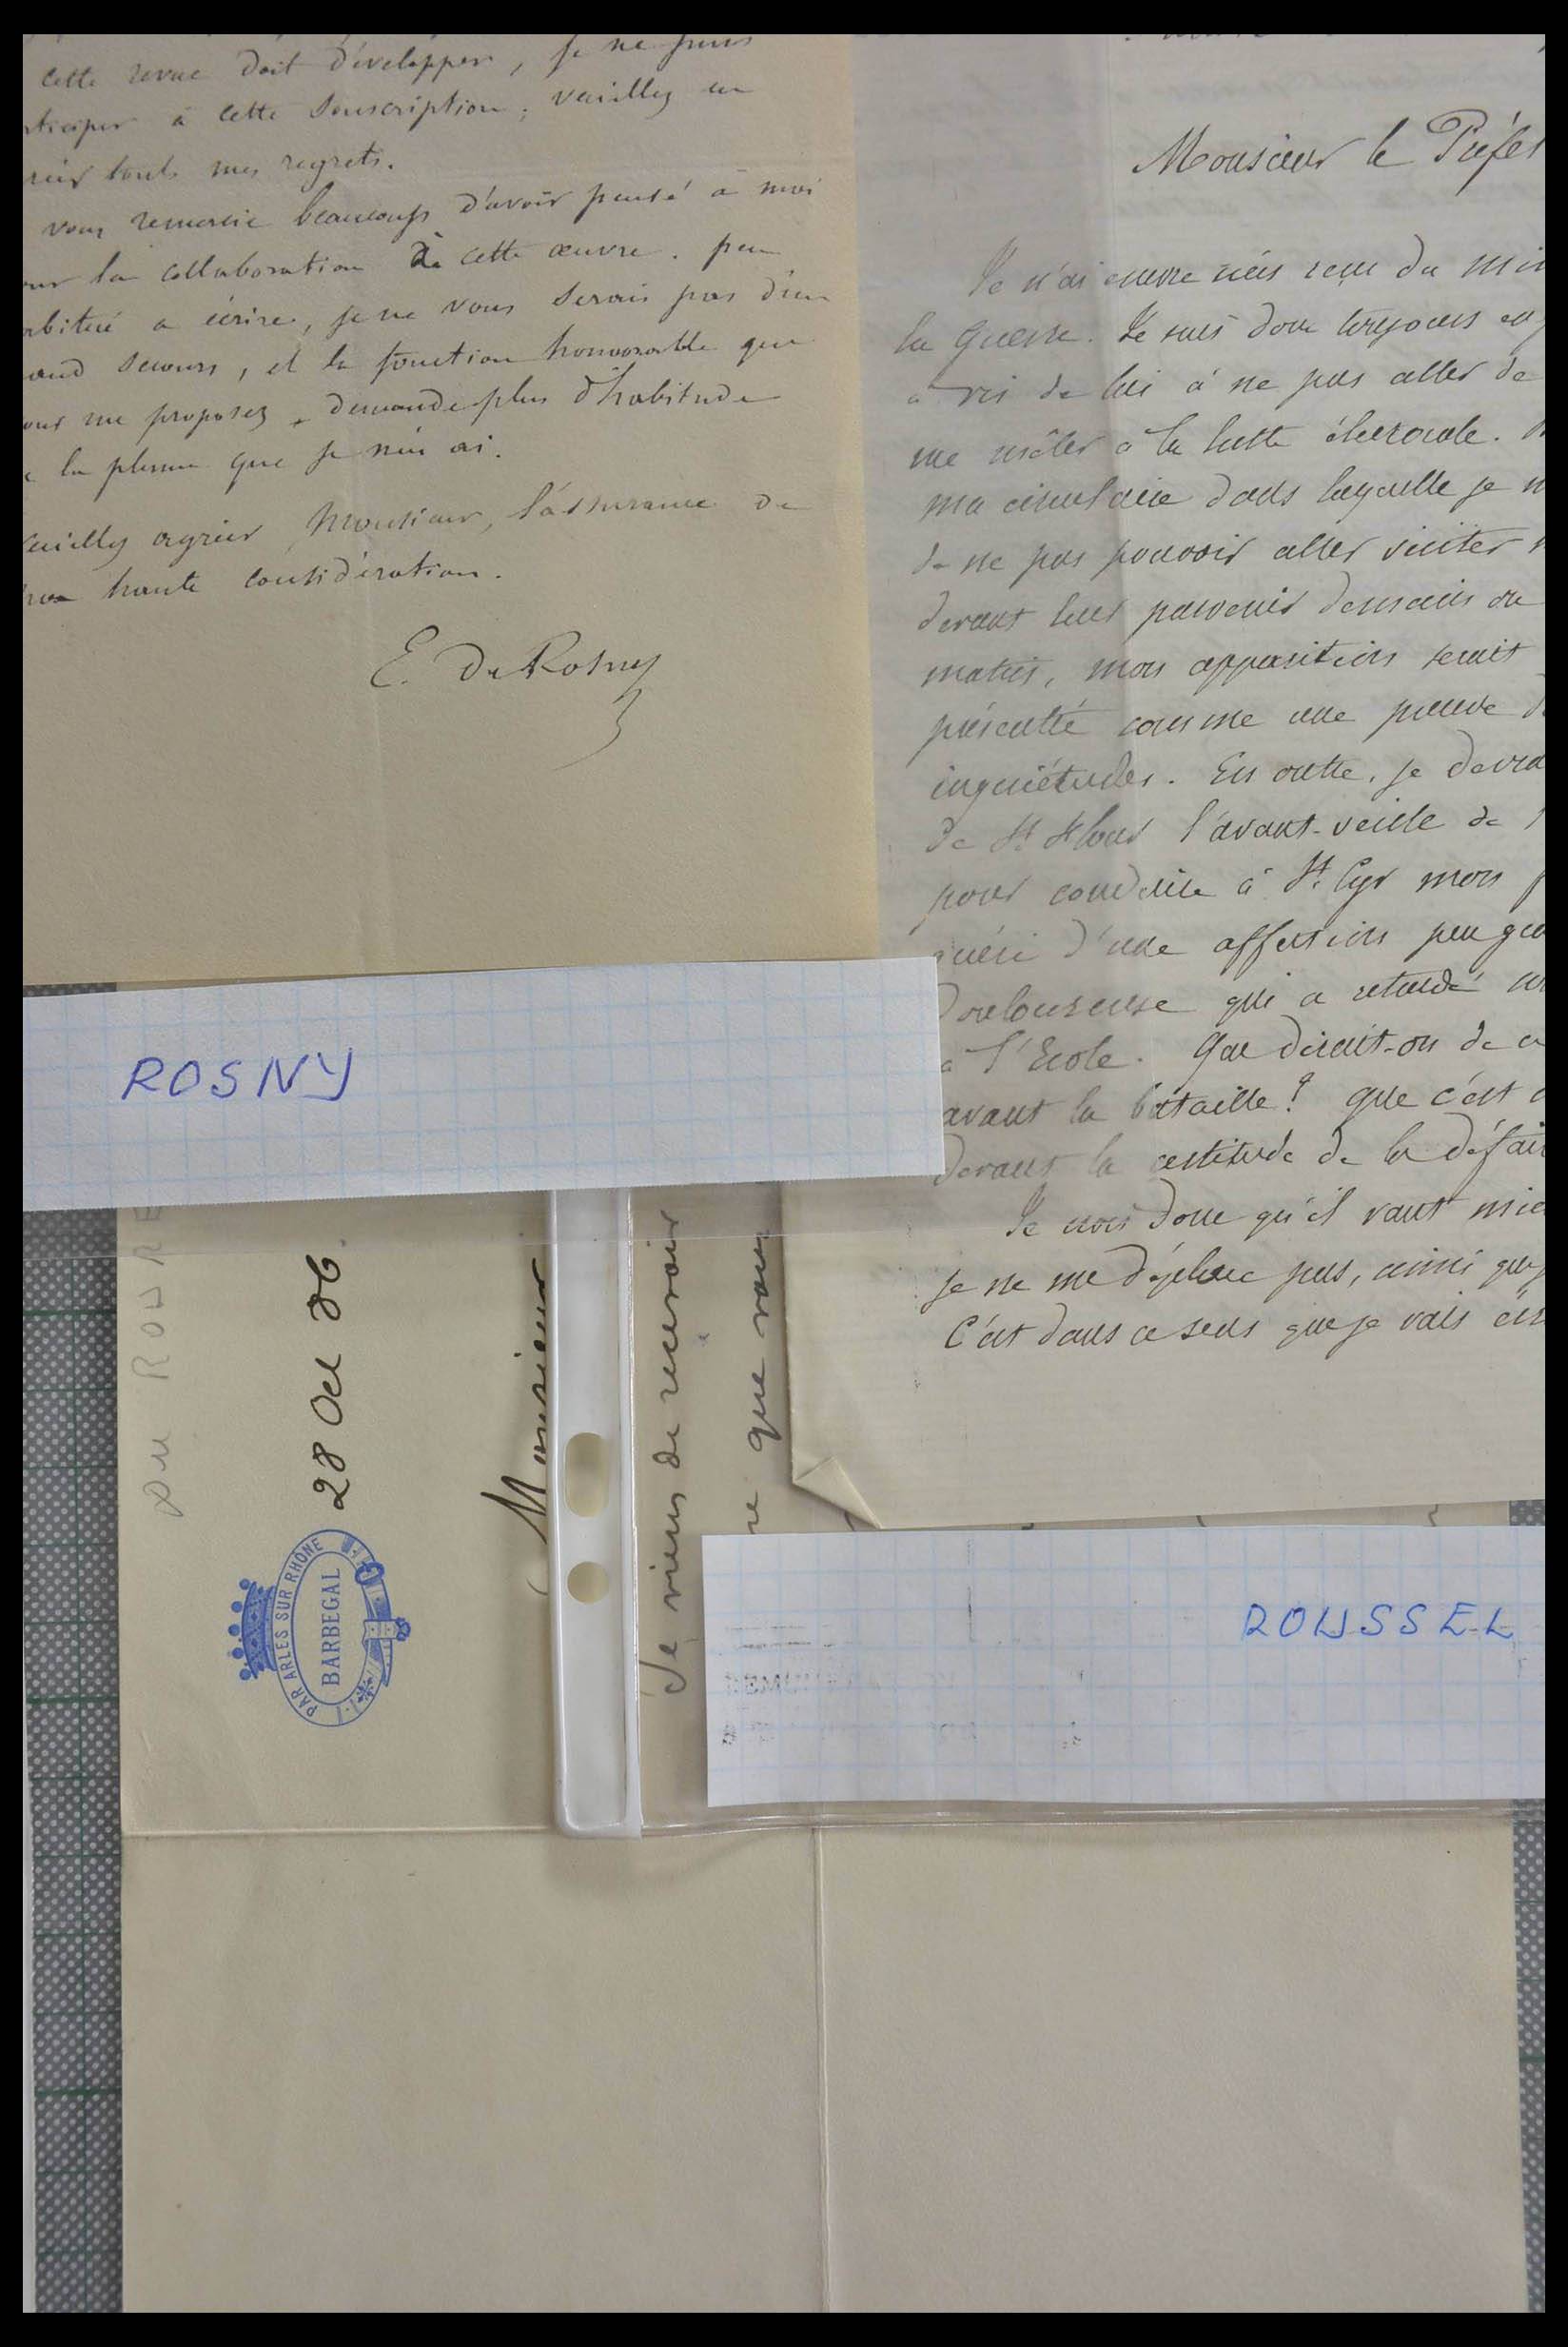 cette revue doit développer, je ne puis
à cette souscription, veuillez en
touts mes regrets.
vous remercie beaucoup d'avoir pensé à moi
la collaboration de cette œuvre. peu
a écrire, je ne vous serais pas d'un
secours, et la fonction honorable que
me proposez, demande plus d'habitude
la plume que je n'en ai.
agréer Monsieur, l'assurance de
haute considération.
E. De Rosny
ROSNY
Monsieur le Préfet
Je n'ai encore rien reçu du
la Guerre. Je suis donc toujours
vis de lui à ne pas aller
me mêler à la lutte électorale.
ma circulaire dans laquelle je
de ne pas pouvoir aller visiter
devant leur parvenir demain ou
matin, mon apparition serait
présentée comme une preuve
inquiétudes. En outre, je
de St Flour l'avant-veille de
pour conduire à St. Cyr mon
guéri d'une affection peu
douloureuse qui a retardé
à l'Ecole. Que dirait-on de
avant la bataille? que c'est
devant la certitude de la
Je crois donc qu'il vaut
je ne me déplace pas, ainsi
C'est dans ce sens que je vais
ROUSSEL
DU ROURE
28 Oct 86
PAR ARLES SUR RHÔNE
BARBEGAL
Monsieur
Je viens de recevoir
que vous